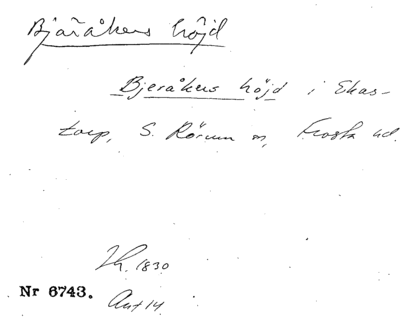 Bjäråkers höjd
Bjeråkers höjd i Ekas-
torp, S. Rörum sn, Frosta hd.
Th. 1830
Nr 6743. Ant 14